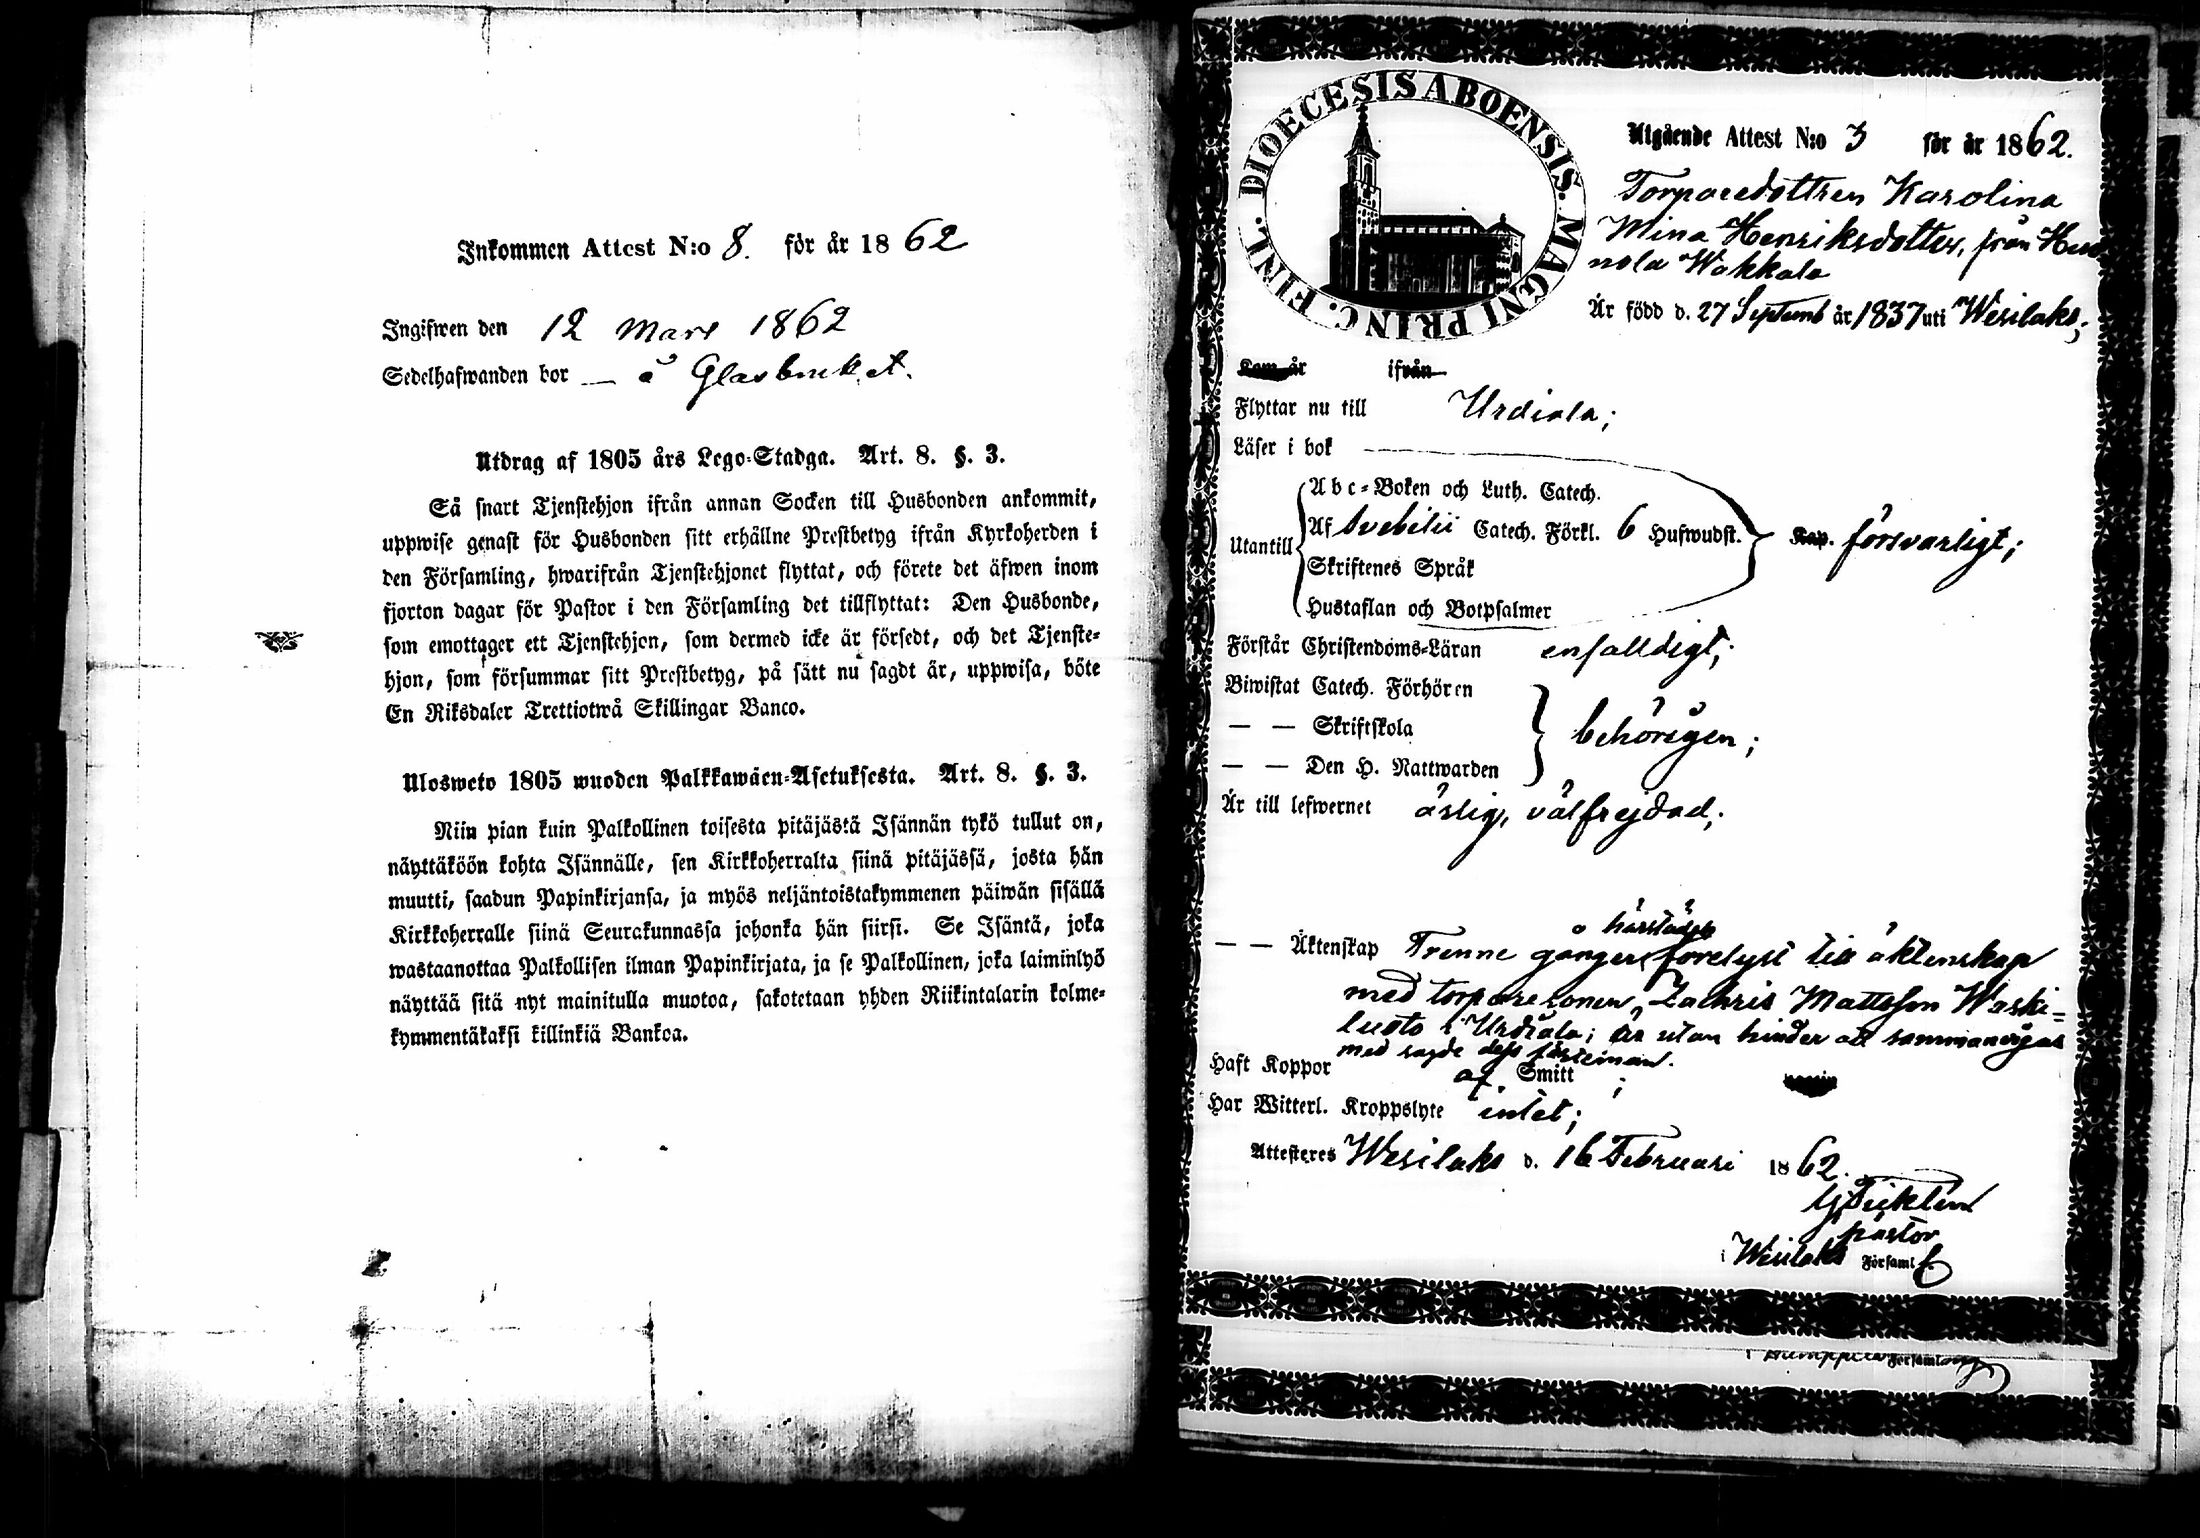 Inkommen Attest N:o 8. för år 1862
Ingifwen den 12 Mars 1862
Sedelhafwanden bor — å Glasbruket.
Utdrag af 1805 års Lego-Stadga. Art. 8. §. 3.
Så snart Tjenstehjon ifrån annan Socken till Husbonden ankommit,
uppwise genast för Husbonden sitt erhållne Prestbetyg ifrån Kyrkoherden i
den Församling, hwarifrån Tjenstehjonet flyttat, och förete det äfwen inom
fjorton dagar för Pastor i den Församling det tillflyttat: Den Husbonde,
som emottager ett Tjenstehjon, som dermed icke är försedt, och det Tjenste-
hjon, som försummar sitt Prestbetyg, på sätt nu sagdt är, uppwisa, böte
En Riksdaler Trettiotwå Skillingar Banco.
Ulosweto 1805 wuoden Palkkawäen-Asetuksesta. Art. 8. §. 3.
Niin pian kuin Palkollinen toisesta pitäjästä Isännän tykö tullut on,
näyttäköön kohta Isännälle, sen Kirkkoherralta siinä pitäjässä, josta hän
muutti, saadun Papinkirjansa, ja myös neljäntoistakymmenen päiwän sisällä
Kirkkoherralle siinä Seurakunnassa johonka hän siirsi. Se Isäntä, joka
wastaanottaa Palkollisen ilman Papinkirjata, ja se Palkollinen, joka laiminlyö
näyttää sitä nyt mainitulla muotoa, sakotetaan yhden Riikintalarin kolme-
kymmentäkaksi killinkiä Bankoa.
DIOECESIS ABOENSIS. MAGNI PRINC. FINL.
Utgående Attest N:o 3 för år 1862.
Torparedottren Karolina
Mina Henriksdotter, från
nola Wakkala
Är född d. 27 Septemb år 1837 uti Wesilaks;
Kom år ifrån
Flyttar nu till Urdiala;
Läser i bok
Utantill
Abc-Boken och Luth. Catech.
Af Svebilii Catech. Förkl. 6 Hufwudst.
Skriftenes Språk
Hustaflan och Botpsalmer
Kap. försvarligt;
Förstår Christendoms-Läran enfalldigt;
Biwistat Catech. Förhören
— — Skriftskola
— — Den H. Nattwarden
behörigen;
Är till lefwernet ärlig, välfrejdad;
härstädes
— — Äktenskap Trenne gånger förelyst till äktenskap
med torparesonen Zachris Mattsson Waski-
luoto i Urdiala; är utan hinder att sammanvigas
med sagde dess fästeman.
Haft Koppor af Smitt;
Har Witterl. Kroppslyte intet;
Attesteres Wesilaks d. 16 Februari 1862.
pastor
i Wesilaks Församl
Församling